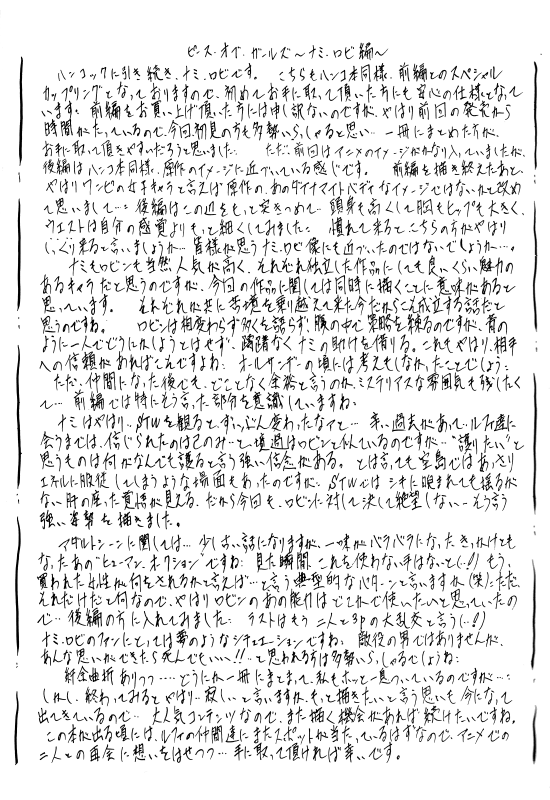 ピース・オブ・ガールズ～ナミ・ロビ編～
ハンコックに引き続き、ナミ、ロビです。 こちらもハンコ本同様、前編とのスペシャル
カップリングとなっておりますので、初めてお手に取って頂いた方にも安心の仕様となって
います。前編をお買い上げ頂いた方には申し訳ないのですが、やはり前回の発売から
時間がたっているので、今回初見の方も多勢いらっしゃると思い…一冊にまとめた方が、
お手に取って頂きやすいだろうと思いました。 ただ、前回はアニメのイメージがかなり入っていましたが、
後編はハンコ本同様、原作のイメージに近づいている感じです。 前編を描き終えたあと、
やはりワンピの女子キャラと言えば原作の、あのダイナマイトバディなイメージではないかと改め
て思いまして…後編はこの辺をもっと突きつめて、頭身も高くして胸もヒップも大きく、
ウエストは自分の感覚よりもっと細くしてみました。 慣れて来るとこちらの方がやはり
しっくり来ると言いましょうか…皆様が思うナミ、ロビ像にも近づいたのではないでしょうか…。
ナミもロビンも当然人気が高く、それぞれ独立した作品にしても良いくらい魅力の
あるキャラだと思うのですが、今回の作品に関しては同時に描くことに意味があると
思っています。 それぞれが共に苦境を乗り越えて来た今だからこそ成立する話だと
思うのですね。 ロビンは相変わらず多くを語らず、腹の中で策略を練るのですが、昔の
ように一人でどうにかしようとはせず、躊躇なくナミの助けを借りる。これもやはり、相手
への信頼があればこそですよね。オールサンデーの頃には考えもしなかったことでしょう…
ただ、仲間になった後でも、どことなく余裕と言うのか、ミステリアスな雰囲気も残したく
て…前編では特にそう言った部分を意識していますね。
ナミはやはり、STWを観ると、ずいぶん変わったなアと… 辛い過去があって、ルフィ達に
会うまでは、信じられたのは己のみ…と、境遇はロビンと似ているのですが…“護りたい”と
思うものは何がなんでも護ると言う強い信念がある。 とは言っても空島ではあっさり
エネルに服従してしまうような場面もあったのですが、STWではシキに睨まれても揺るが
ない肝の座った貫禄が見える、だから今回も、ロビンに対して決して絶望しない…そう言う
強い姿勢を描きました。
アダルトシーンに関しては…少し古い話になりますが、一味がバラバラになったきっかけとも
なったあの“ヒューマン・オークション”ですね。見た瞬間、これを使わない手はないと(…!) もう、
買われた女性が何をされるかと言えば…と言う典型的なパターンと言いますか(笑)。ただ、
それだけだと何なので、やはりロビンのあの能力はどこかで使いたいと思っていたの
で…後編の方に入れてみました。 ラストはもう二人と3Pの大乱交と言う(…!)
ナミ、ロビのファンにとっては夢のようなシチュエーションですね。 敵役の男ではありませんが、
あんな思いができたら死んでもいい…!! …と思われる方は多勢いらっしゃるでしょうね。
紆余曲折ありつつ……どうにか一冊にまとまって、私もホッと一息ついているのですが…。
しかし、終わってみるとやはり…寂しいと言いますか、もっと描きたいと言う思いも今になって
出てきているので… 大人気コンテンツなので、また描く機会があれば続けたいですね。
この本が出る頃には、ルフィの仲間達にまたスポットが当たっているはずなので、アニメでの
二人との再会に想いをはせつつ…手に取って頂ければ幸いです。